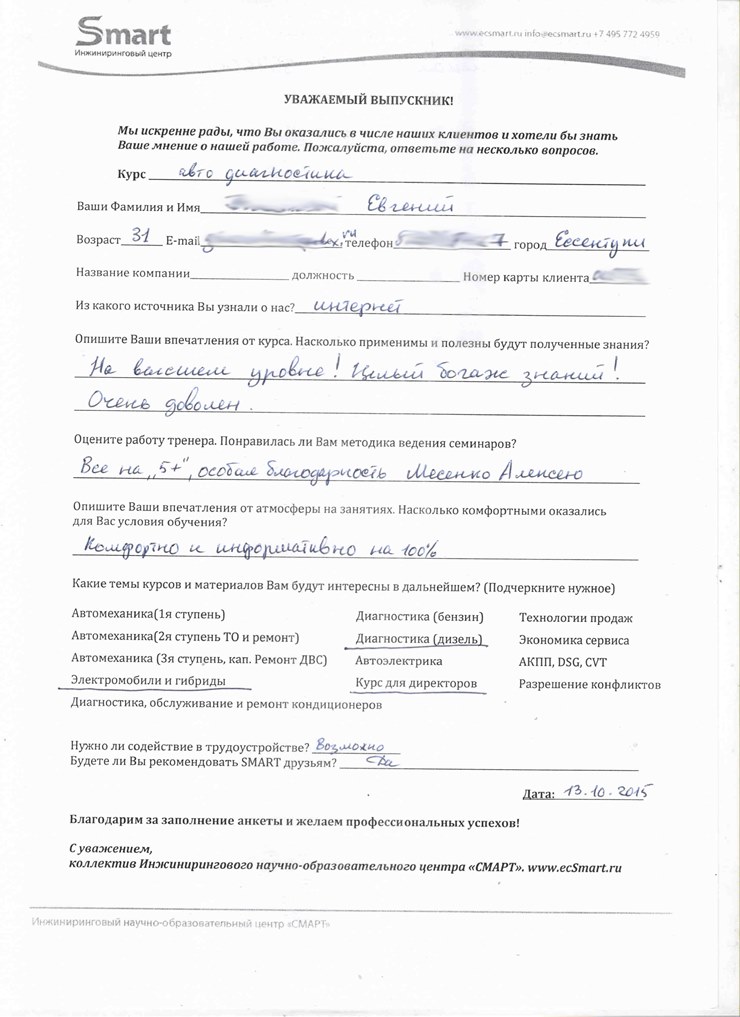 Smart
Инжиниринговый центр
www.ecsmart.ru info@ecsmart.ru +7 495 772 4959
УВАЖАЕМЫЙ ВЫПУСКНИК!
Мы искренне рады, что Вы оказались в числе наших клиентов и хотели бы знать
Ваше мнение о нашей работе. Пожалуйста, ответьте на несколько вопросов.
Курс авто диагностика
Ваши Фамилия и Имя Евгений
Возраст 31 E-mail .ru телефон 7 город Ессентуки
Название компании должность Номер карты клиента
Из какого источника Вы узнали о нас? интернет
Опишите Ваши впечатления от курса. Насколько применимы и полезны будут полученные знания?
На высшем уровне! Целый богаж знаний!
Очень доволен.
Оцените работу тренера. Понравилась ли Вам методика ведения семинаров?
Все на „5+", особая благодарность Месенко Алексею
Опишите Ваши впечатления от атмосферы на занятиях. Насколько комфортными оказались
для Вас условия обучения?
Комфортно и информативно на 100%
Какие темы курсов и материалов Вам будут интересны в дальнейшем? (Подчеркните нужное)
Автомеханика(1я ступень) Диагностика (бензин) Технологии продаж
Автомеханика(2я ступень ТО и ремонт) Диагностика (дизель) Экономика сервиса
Автомеханика (3я ступень, кап. Ремонт ДВС) Автоэлектрика АКПП, DSG, CVT
Электромобили и гибриды Курс для директоров Разрешение конфликтов
Диагностика, обслуживание и ремонт кондиционеров
Нужно ли содействие в трудоустройстве? Возможно
Будете ли Вы рекомендовать SMART друзьям? Да
Дата: 13.10.2015
Благодарим за заполнение анкеты и желаем профессиональных успехов!
С уважением,
коллектив Инжинирингового научно-образовательного центра «СМАРТ». www.ecSmart.ru
Инжиниринговый научно-образовательный центр «СМАРТ»